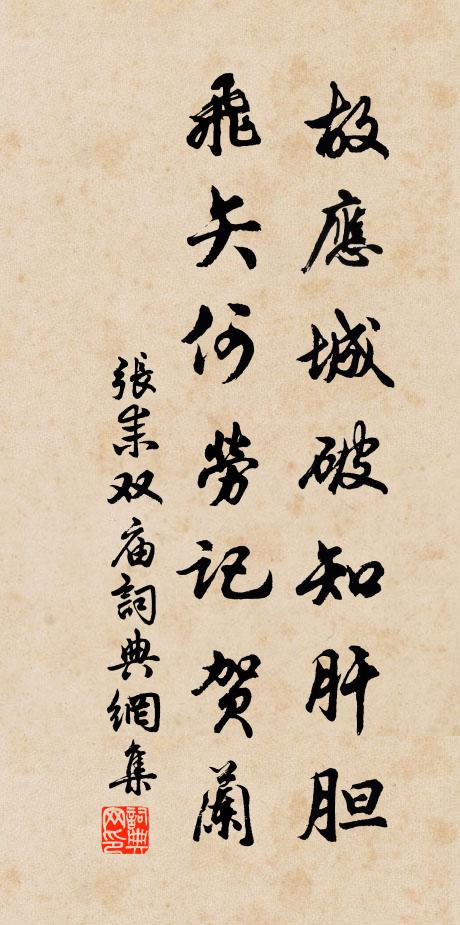 故應城破知肝胆
飛矢何勞記贺蘭
張耒双庙詞典網集
詞典网印